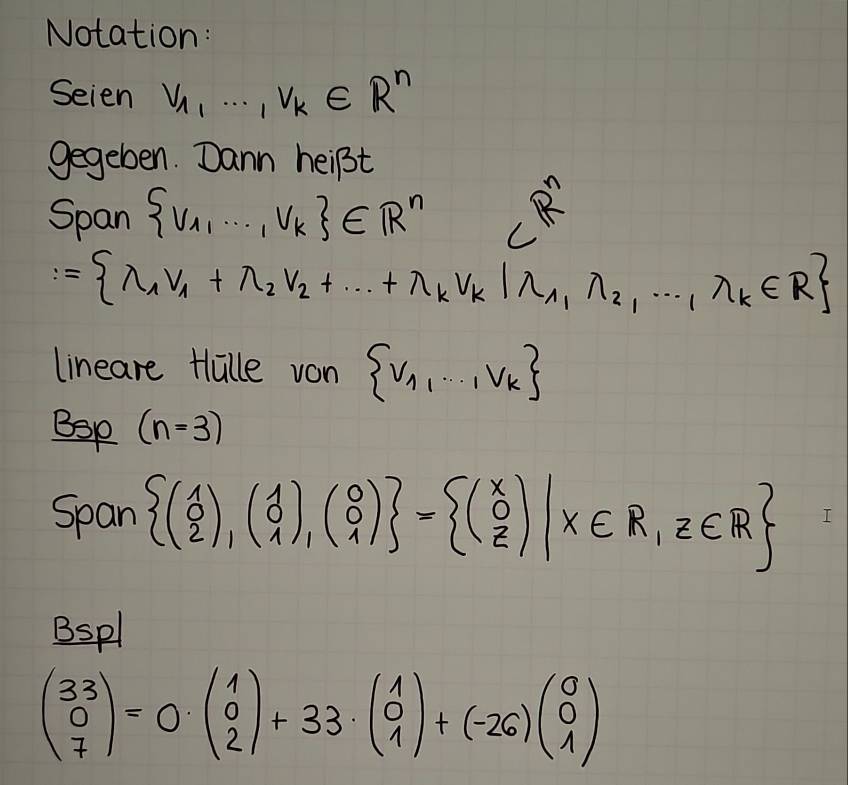 Notation:
Seien v₁, ..., vₖ ∈ ℝⁿ
gegeben. Dann heißt
Span {v₁, ..., vₖ} ∈ ℝⁿ ⊂ ℝⁿ
:= {λ₁v₁ + λ₂v₂ + ... + λₖvₖ | λ₁, λ₂, ..., λₖ ∈ ℝ}
lineare Hülle von {v₁, ..., vₖ}
Bsp (n=3)
Span {(1 0 2), (1 0 1), (0 0 1)} = {(x 0 z) | x ∈ ℝ, z ∈ ℝ}
Bspl
(33 0 7) = 0 · (1 0 2) + 33 · (1 0 1) + (-26) (0 0 1)